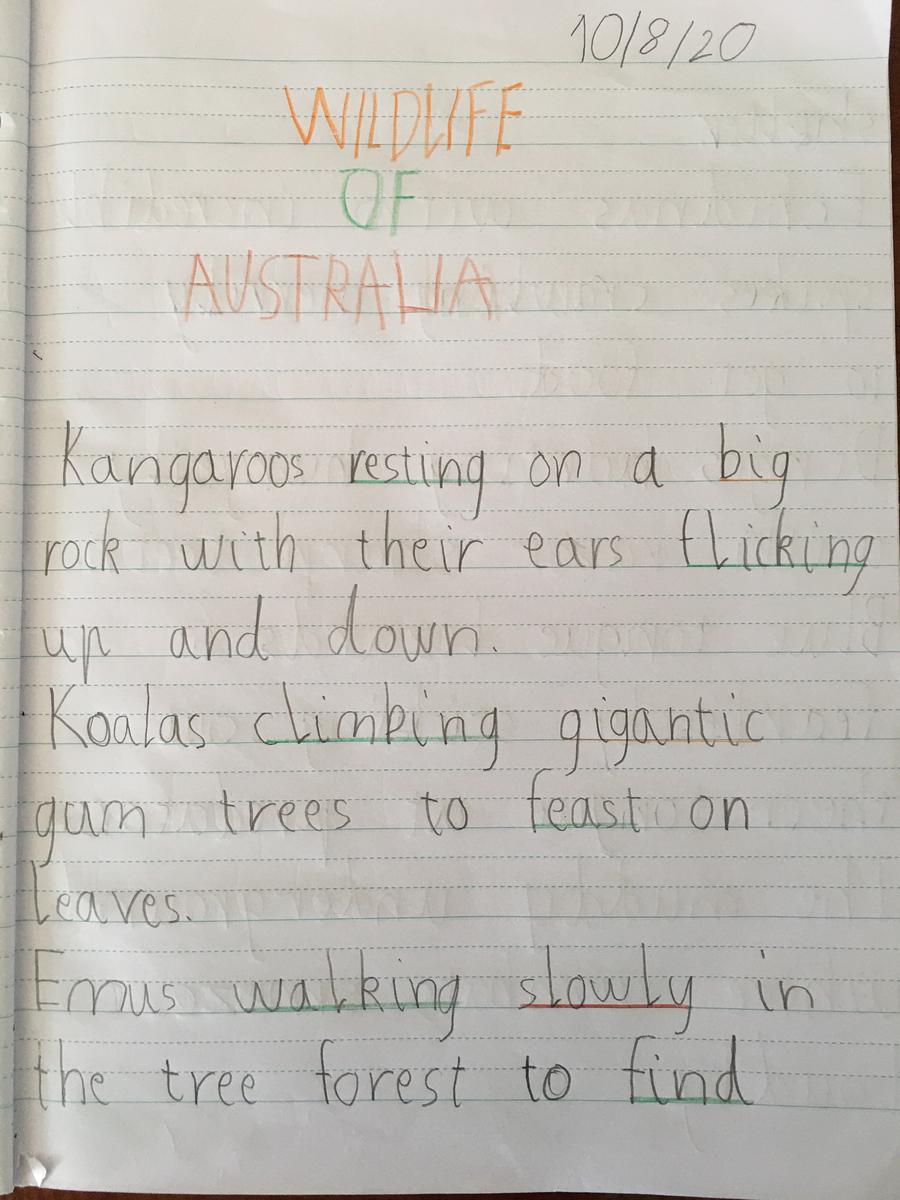 10/8/20
WILDLIFE
OF
AUSTRALIA
Kangaroos resting on a big
rock with their ears flicking
up and down.
Koalas climbing gigantic
gum trees to feast on
leaves.
Emus walking slowly in
the tree forest to find